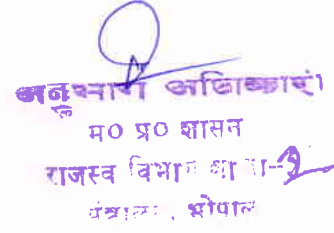 अनुभाग अधिकारी
म० प्र० शासन
राजस्व विभाग शाखा-9
मंत्रालय, भोपाल